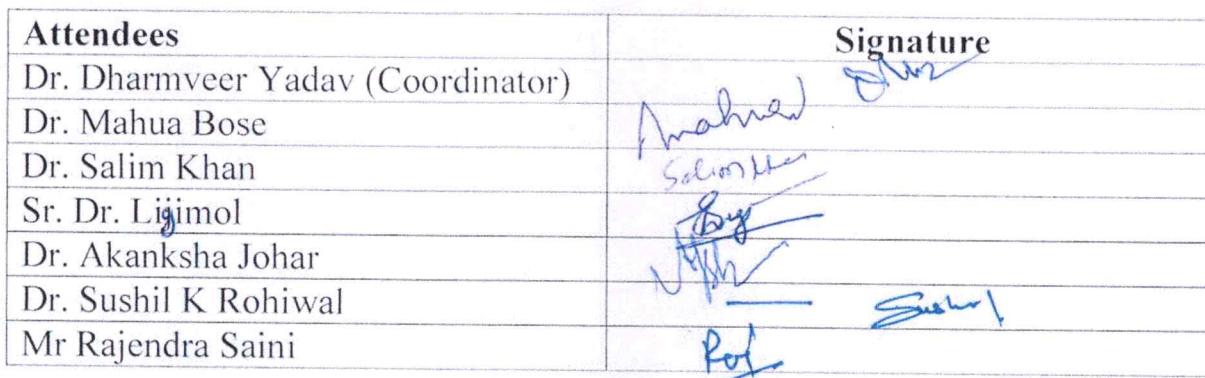 Attendees Signature
Dr. Dharmveer Yadav (Coordinator)
Dr. Mahua Bose
Dr. Salim Khan
Sr. Dr. Ligimol
Dr. Akanksha Johar
Dr. Sushil K Rohiwal
Mr Rajendra Saini